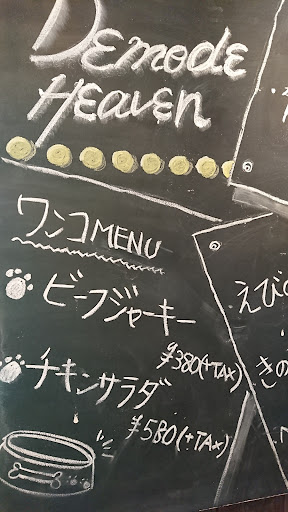 Demode
Heaven
ワンコMENU
ビーフジャーキー
¥380(+TAX)
チキンサラダ
¥580(+TAX)
えび
きの